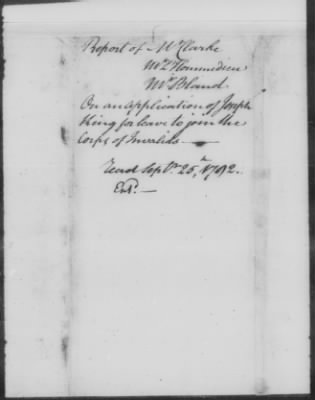 Report of Mr Clarke
Mr L'Hommedieu
Mr Bland
On an application of Joseph
King for leave to join the
Corps of Invalids —
Read Sept. 25, 1782.
Entd. —